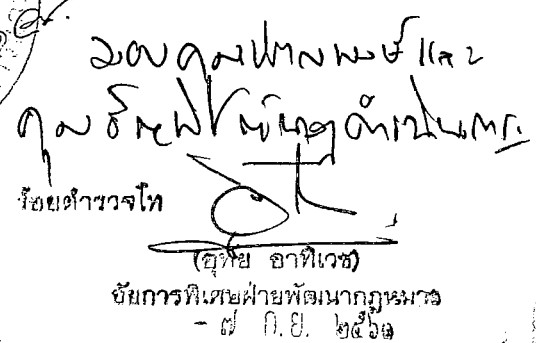 มอบคุณ และ
คุณ ดำเนินการ
ร้อยตำรวจโท
(อุทัย อาทิเวช)
อัยการพิเศษฝ่ายพัฒนากฎหมาย
- ๗ ก.ย. ๒๕๖๑